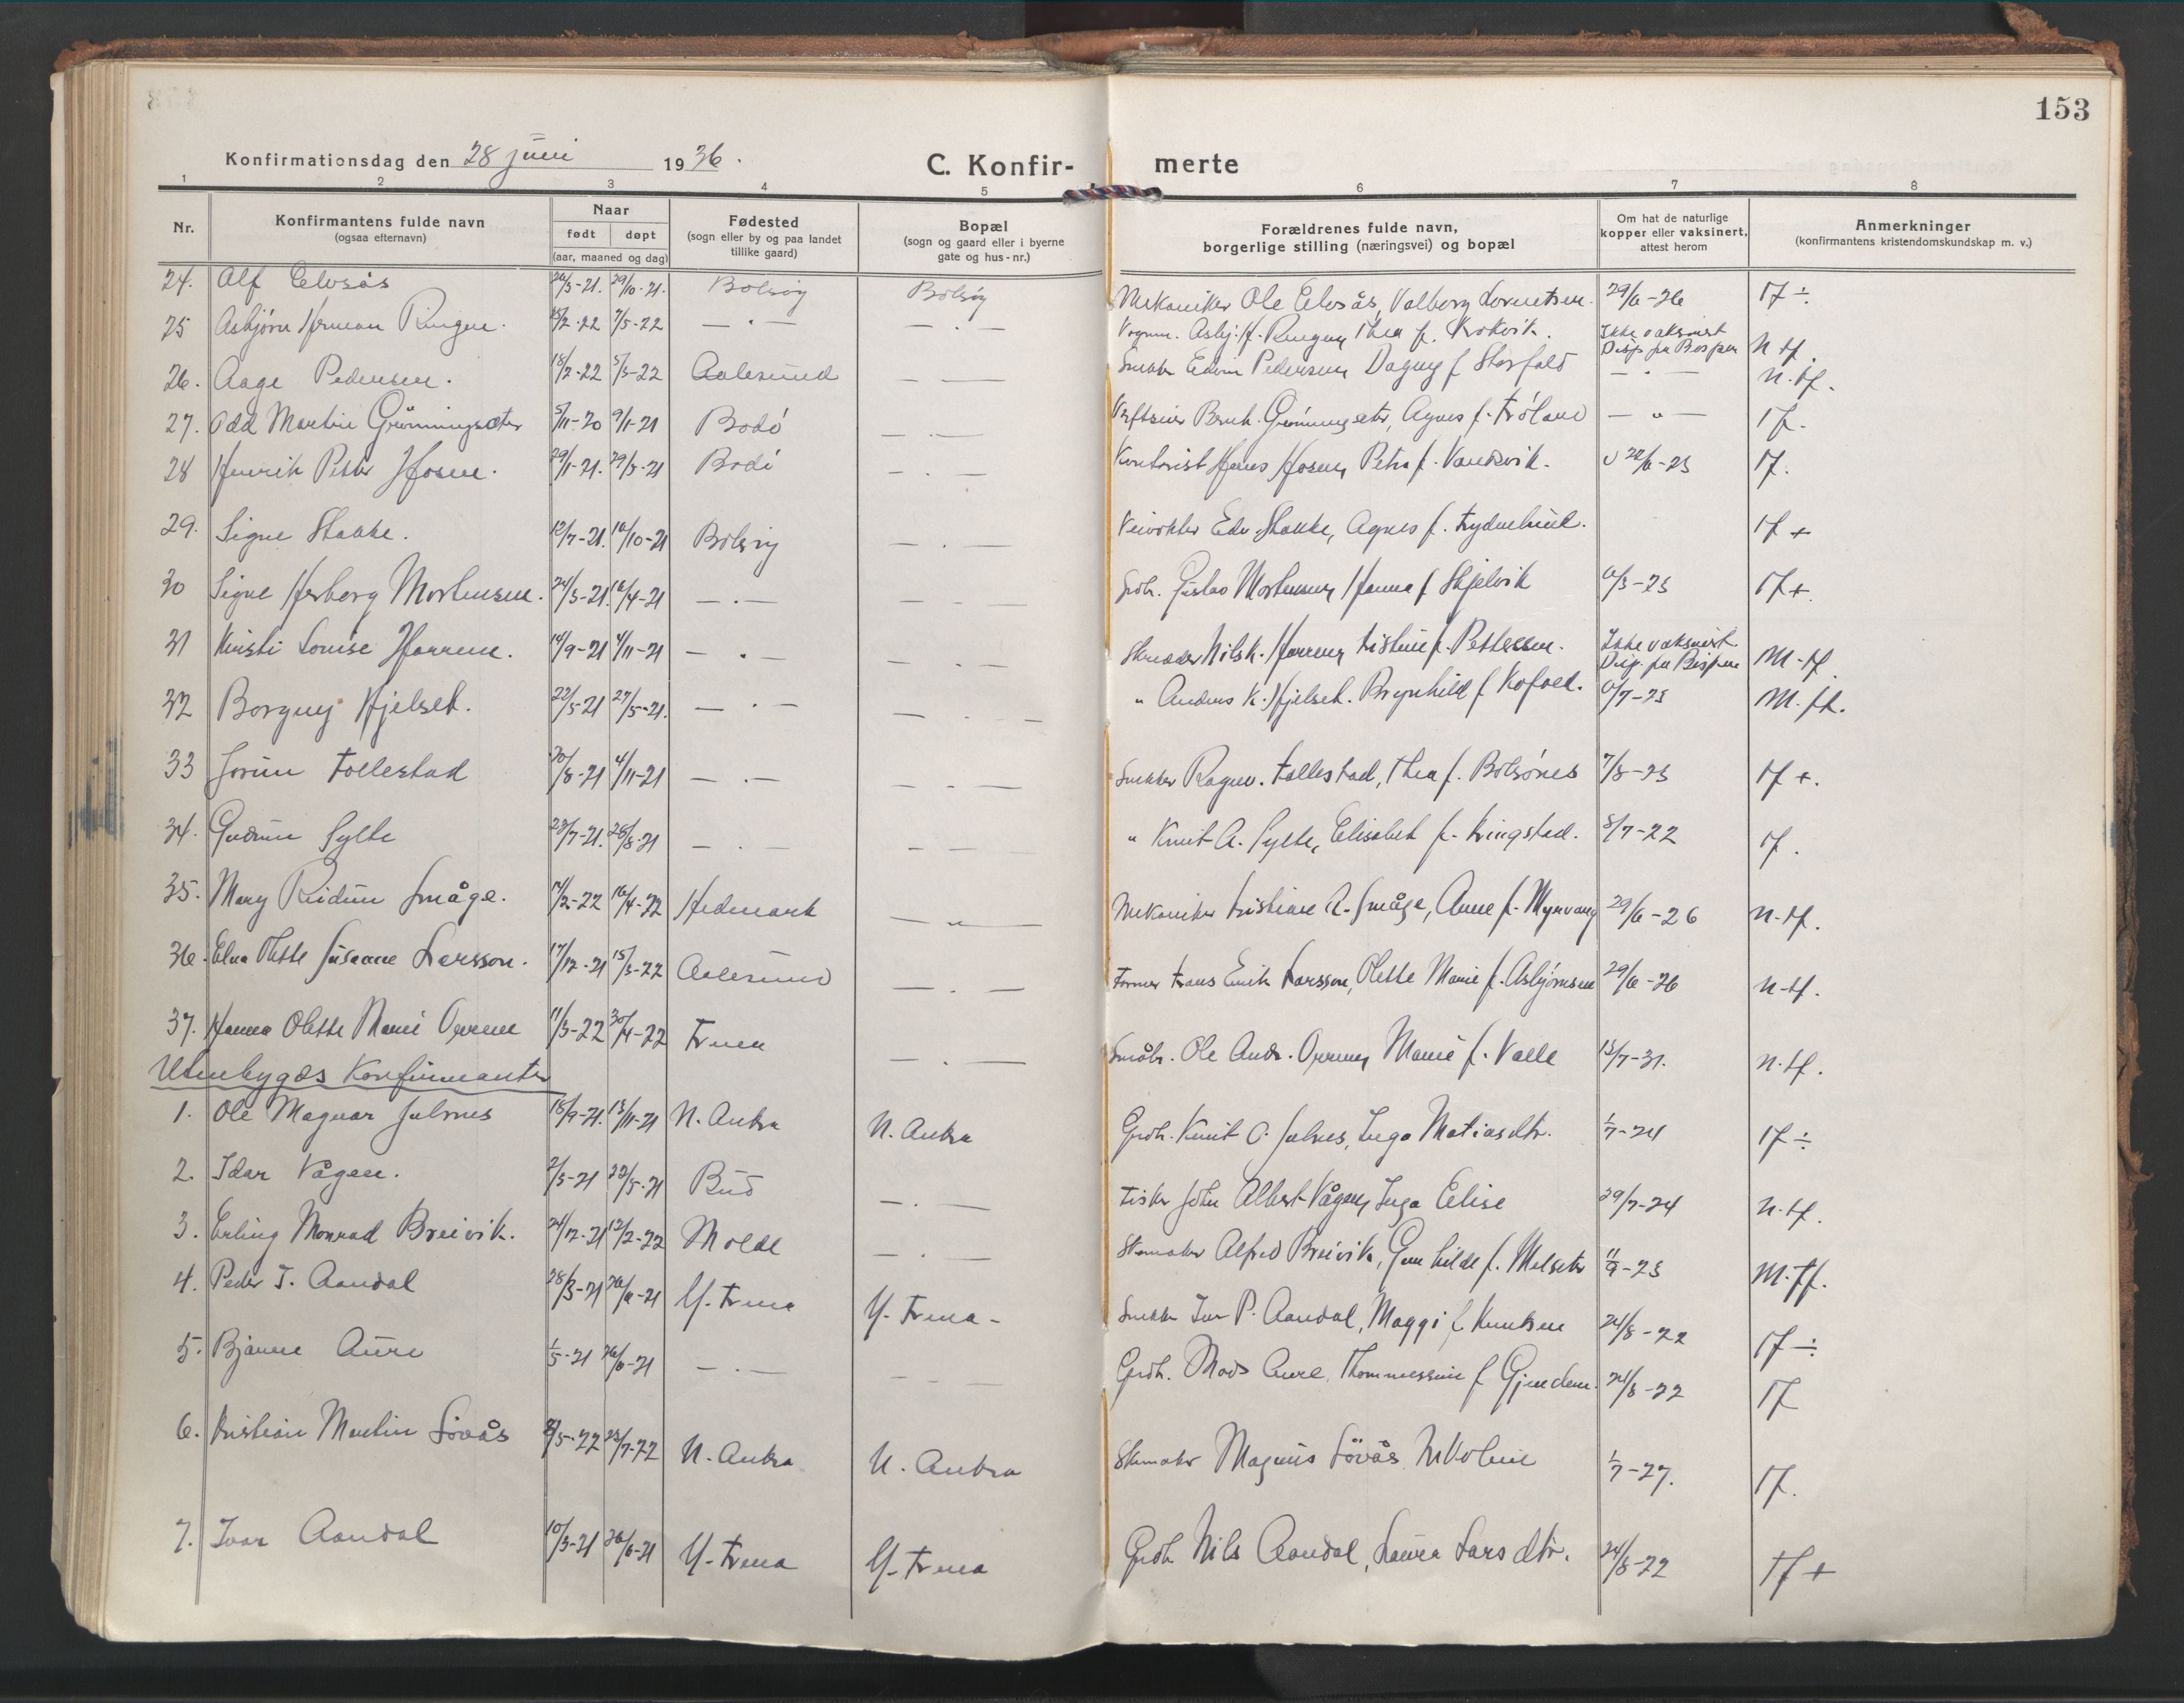 153
Konfirmationsdag den 28 juni 1936.
C. Konfir- merte
1 2 3 4 5 6 7 8
Nr.
Konfirmantens fulde navn
(ogsaa efternavn)
Naar
født døpt
(aar, maaned og dag)
Fødested
(sogn eller by og paa landet
tillike gaard)
Bopæl
(sogn og gaard eller i byerne
gate og hus-nr.)
Forældrenes fulde navn,
borgerlige stilling (næringsvei) og bopæl
Om hat de naturlige
kopper eller vaksinert,
attest herom
Anmerkninger
(konfirmantens kristendomskundskap m. v.)
24. Alf Elvsås 29/10-21. Bolsøy Bolsøy Mekaniker Ole Elvsås, Valborg 29/6-26
25 Asbjørn Herman Ringen. 7/5-22 — " — — " — Asbj. H. Ringen, Thea f. Krokvik. Ikke vaksinert Disp. fra Bispen
26. Aage Pedersen. 18/2-22 5/5-22 Aalesund — — Snekker Edvin Pedersen, Dagny f. Storfold — " —
27. Odd Martin Grønningsæter 5/11-20 9/1-21 Bodø — " — Bernh. Grønningseter, Agnes f. Frøland — " —
28 Henrik Peter Hosen. 29/1-21. 29/3-21 Bodø — " — Kontorist Hans Hosen, Petra f. Vandvik. v 22/6-23
29. Signe Stakke. 12/7-21. 16/10-21 Bolsøy — " — Veivokter Edv. Stakke, Agnes f.
30 Signe Herborg Mortensen. 24/3-21. 16/4-21 — " — — " — Gustav Mortensen, Hanna f. Skjelvik 6/3-23
31 Kirsti Louise Harnes. 14/9-21 4/11-21 — " — — " — Skredder Nils K. f. Pettersen. Ikke vaksinert. Disp. fra Bispen
32 Borgny Hjelset. 22/5-21 27/5-21. — " — — " — " Anders K. Hjelset. Brynhild f. Kofoed. 6/7-23
33 Jorun Follestad 20/8-21 4/11-21 — " — — " — Snekker Ragnv. Follestad, Thea f. Bolsønes 7/8-23
34. Gudrun Sylte 23/7-21. 28/8-21 — " — — " — " Knut A. Sylte, Elisabet f. Kringstad. 8/7-22
35. Mary Reidun Småge. 14/2-22 16/4-22 Hedmark — " — Mekaniker Kristian A. Småge, Anne f. Myrvang 29/6-26
36. Elna Olette Susanne Larsson. 17/12-21 15/3-22 Aalesund — " — Former Frans Emil Larsson, Olette Marie f. Asbjørnsen 29/6-26
37. Hanna Olette Marie Opren 11/3-22 30/4-22 Fræna — " — Småbr. Ole Andr. Marie f. Valle 13/7-31.
Utenbygds Konfirmanter
1. Ole Magnar Julnes 18/9-21. 13/11-21 N. Aukra N. Aukra Grdbr. Knut O. Julnes, Inga Matiasdtr. 1/7-24
2. Idar Vågen. 2/3-21 22/5-21 Bud — " — Fisker John Albert Vågen, Inga Elise 29/7-24
3. Erling Monrad Breivik. 24/12-21 12/2-22 Molde — " — Skomaker Alfred Breivik, Gunhilde f. Melseter 11/9-23
4. Peder I. Aandal 28/3-21 26/6-21 Y. Fræna Y. Fræna Snekker Iver P. Aandal, Maggi f. Knutsen 24/8-22
5. Bjarne Aure 1/5-21 26/6-21 — " — — " — Grdbr. Mads Aure, Thommessine f. Gjendem. 24/8-22
6. Kristian Martin Løvås 23/7-22 N. Aukra N. Aukra Skomaker Magnus Løvås, 1/7-27.
7. Ivar Aandal 10/3-21 26/6-21 Y. Fræna Y. Fræna Grdbr. Nils Aandal, Laura Larsdtr. 24/8-22